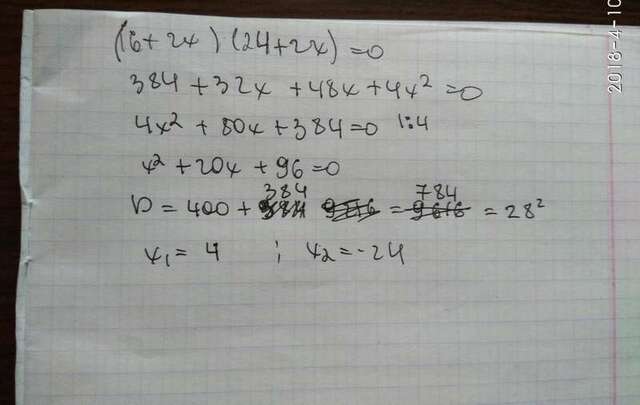 (16+2x)(24+2x)=0
384+32x+48x+4x²=0
4x²+80x+384=0 |:4
x²+20x+96=0
D=400+384=784=28²
x₁=4 ; x₂=-24
2018-4-10